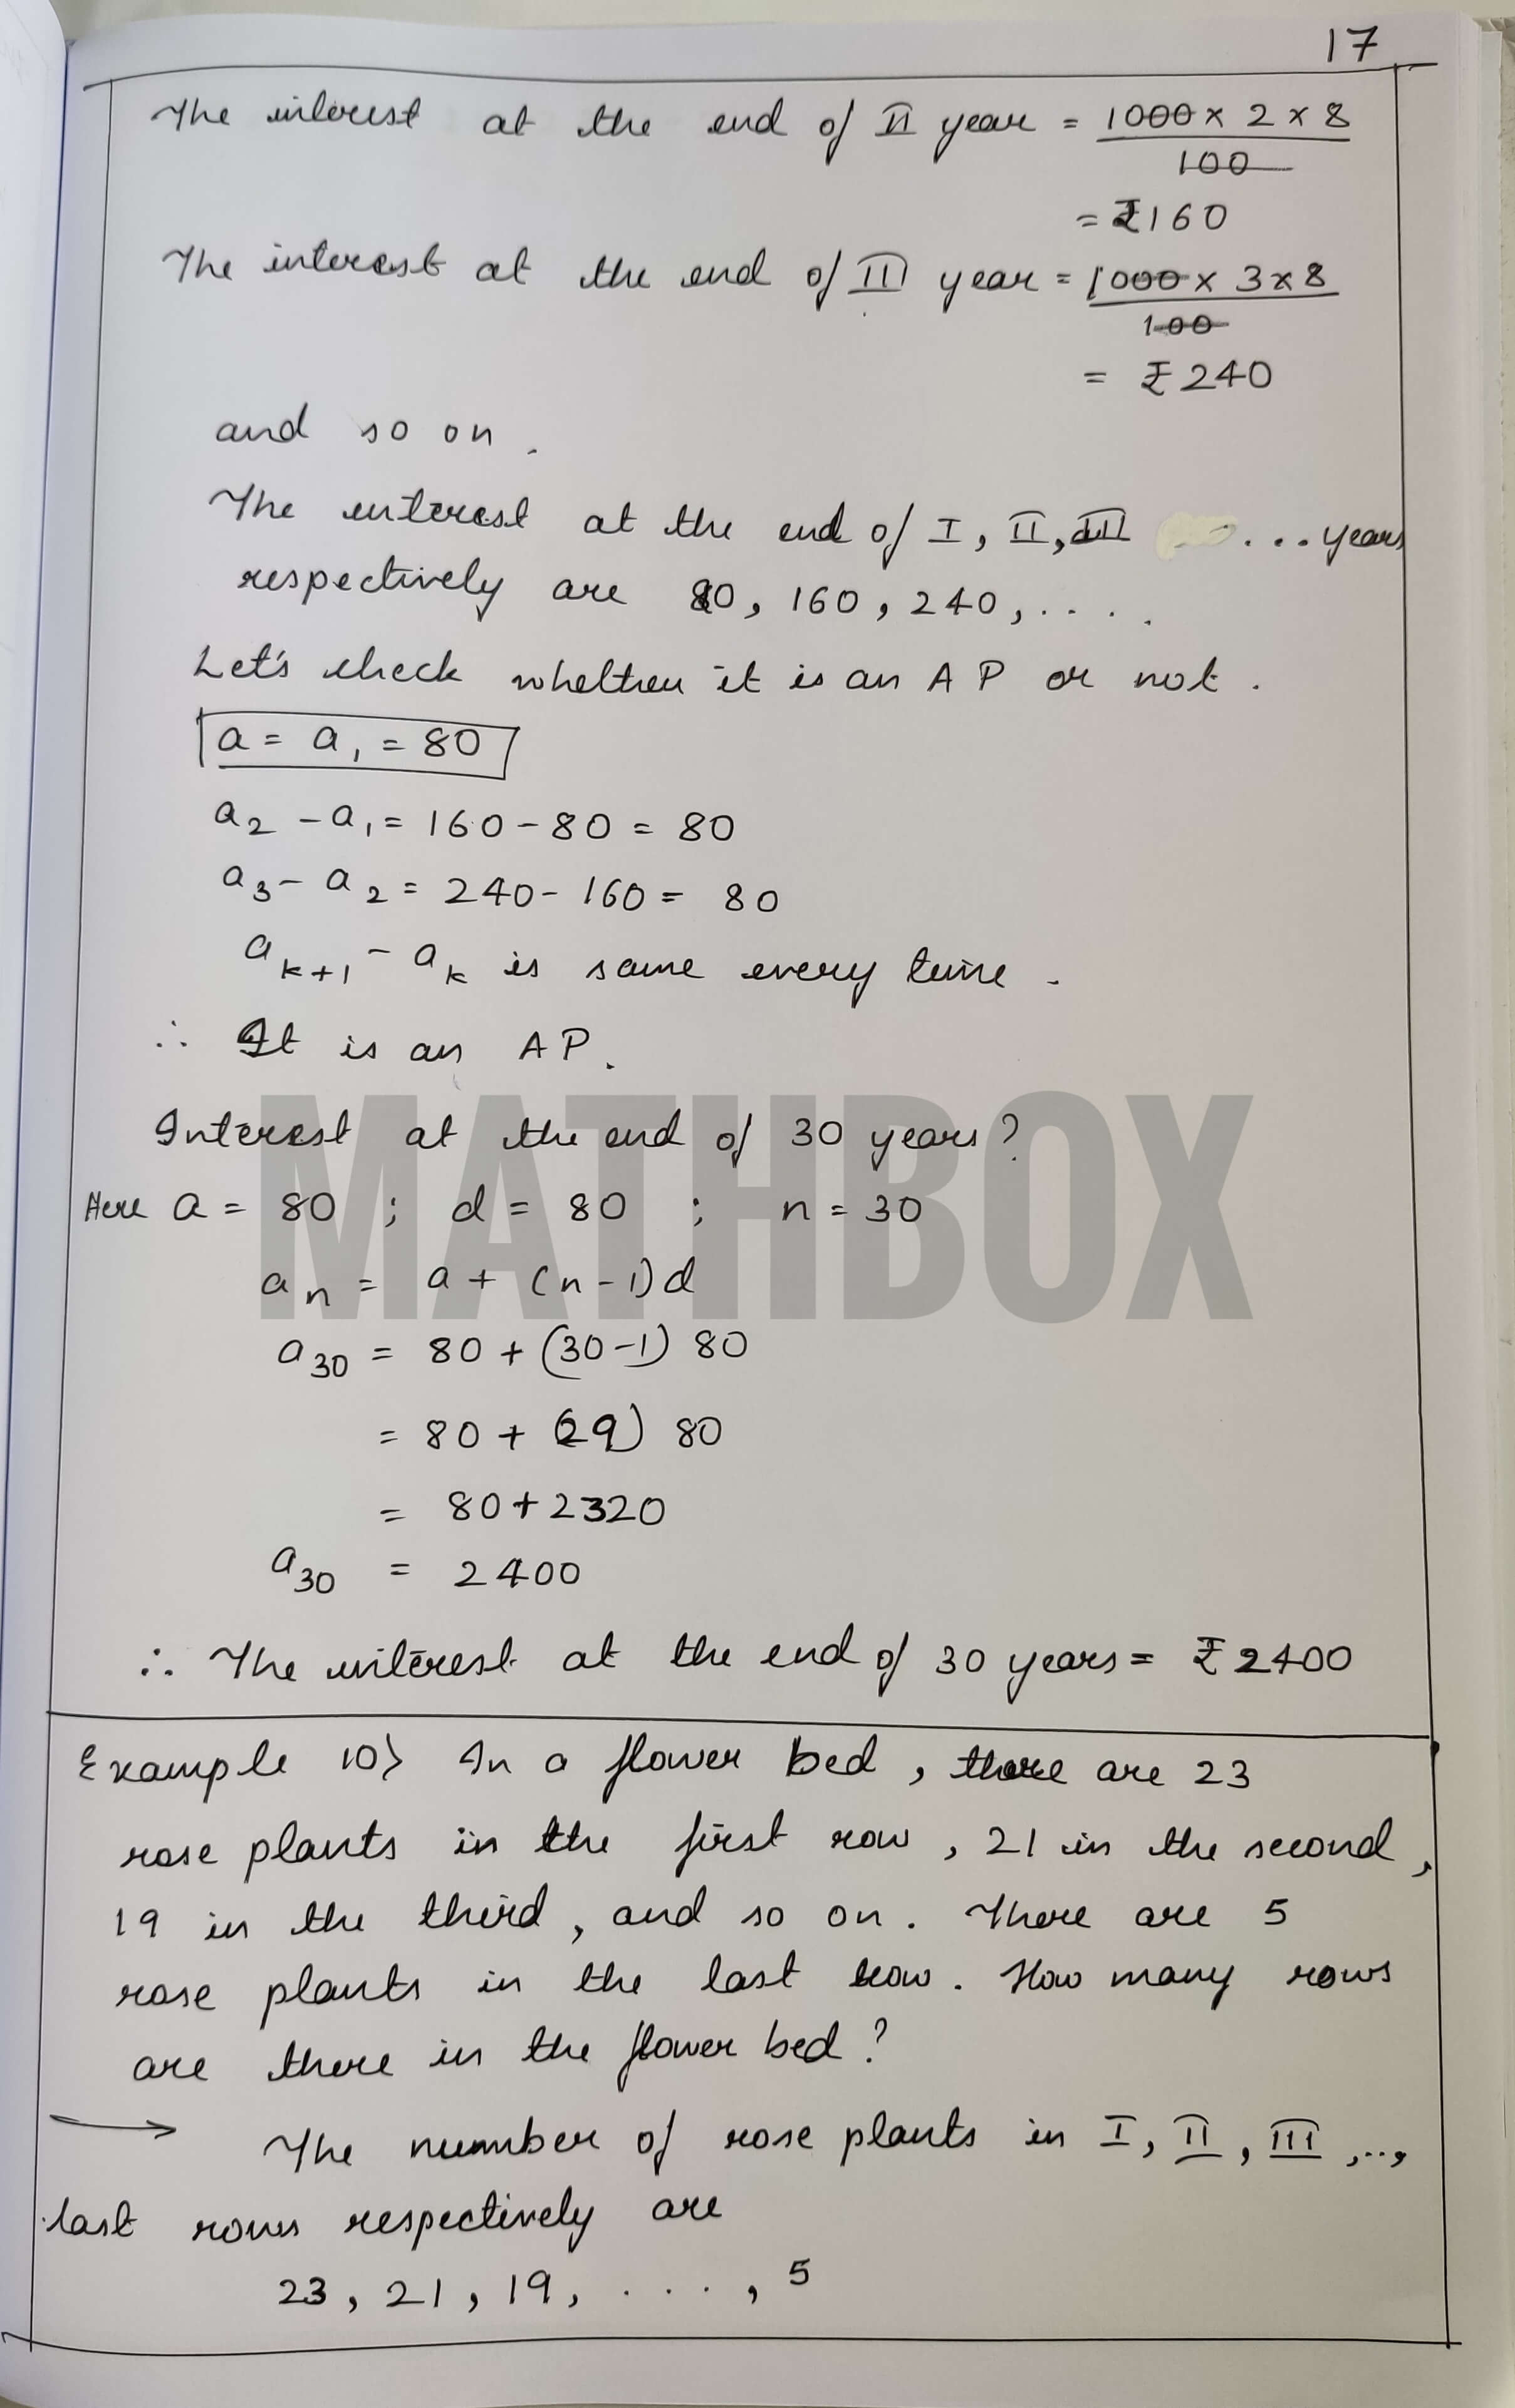 17
The interest at the end of II year = 1000 x 2 x 8
100
= ₹160
The interest at the end of III year = 1000 x 3 x 8
100
= ₹240
and so on.
The interest at the end of I, II, III ... years
respectively are 80, 160, 240, ....
Let's check whether it is an AP or not.
a = a₁ = 80
a₂ - a₁ = 160 - 80 = 80
a₃ - a₂ = 240 - 160 = 80
aₖ₊₁ - aₖ is same every time.
∴ It is an AP.
MATHBOX
Interest at the end of 30 years?
Here a = 80 ; d = 80 ; n = 30
aₙ = a + (n-1)d
a₃₀ = 80 + (30-1) 80
= 80 + (29) 80
= 80 + 2320
a₃₀ = 2400
∴ The interest at the end of 30 years = ₹2400
Example 10> In a flower bed, there are 23
rose plants in the first row, 21 in the second,
19 in the third, and so on. There are 5
rose plants in the last row. How many rows
are there in the flower bed?
→ The number of rose plants in I, II, III, ..,
last rows respectively are
23, 21, 19, ...., 5